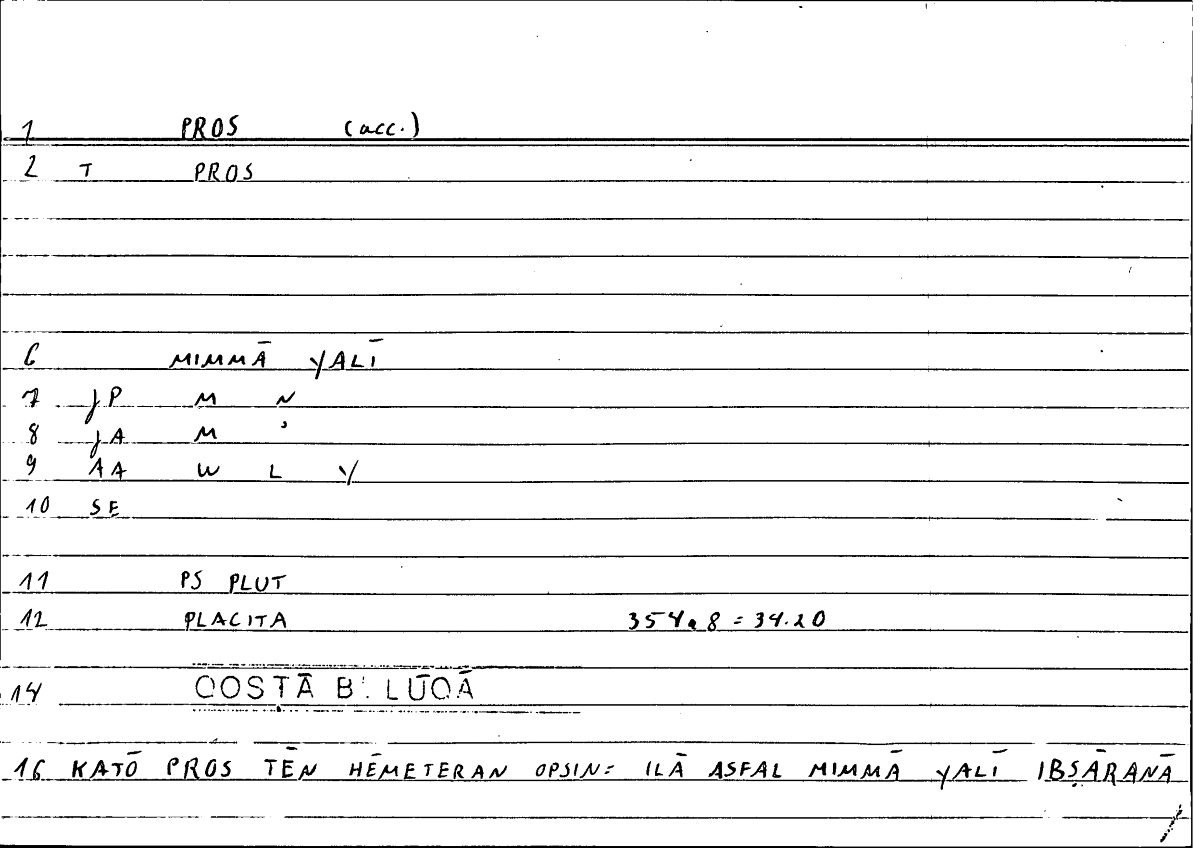 1 PROS (acc.)
2 T PROS
6 MIMMĀ YALĪ
7 JP M N
8 JA M ʾ
9 AA W L Y
10 SE
11 PS PLUT
12 PLACITA 354.8 = 34.20
14 QOSṬĀ B. LŪQĀ
16 KATŌ PROS TĒN HĒMETERAN OPSIN= ILĀ ASFAL MIMMĀ YALĪ IBṢĀRANĀ